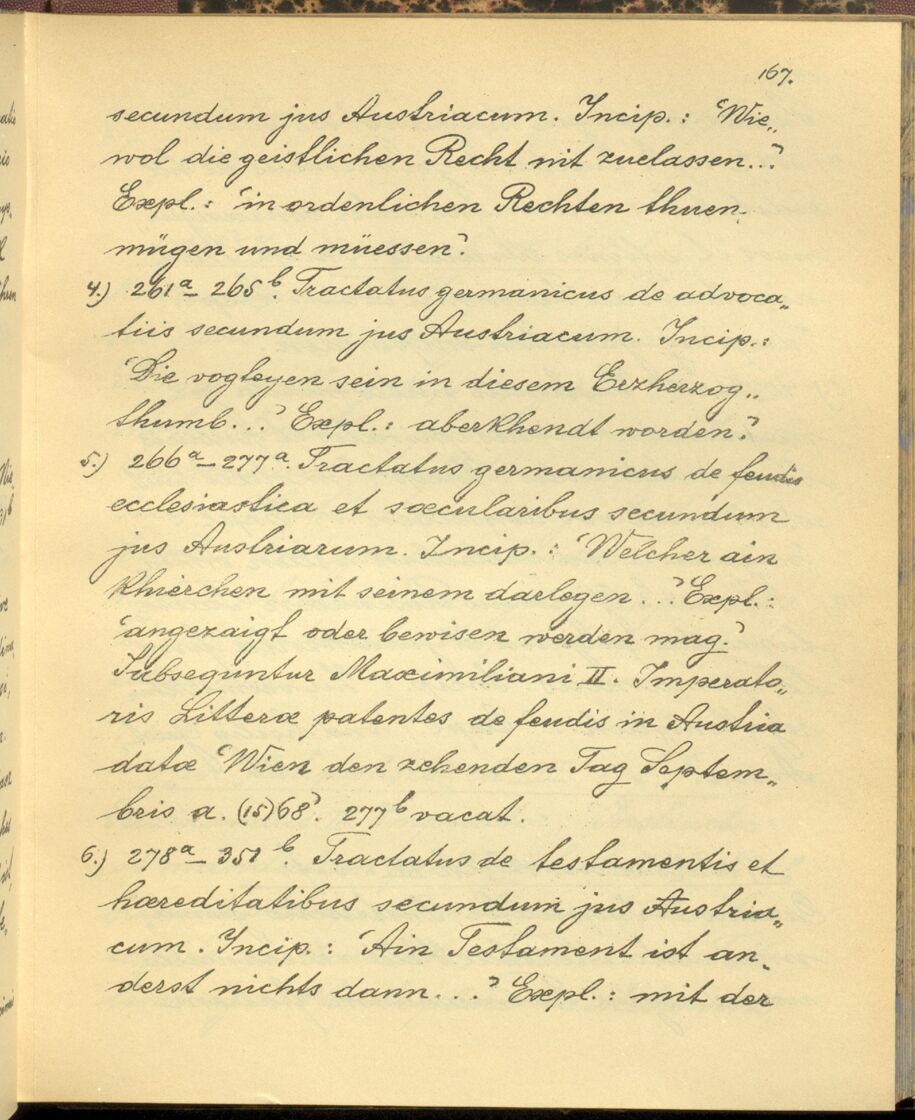 167.
secundum jus Austriacum. Incip.: 'Wie„
wol die geistlichen Recht nit zuelassen...'
Expl.: 'in ordenlichen Rechten thuen
mügen und müessen'.
4.) 261a – 265b. Tractatus germanicus de advoca„
tiis secundum jus Austriacum. Incip.:
'Die vogteyen sein in diesem Erzherzog„
thumb...' Expl.: aberkhendt worden.'
5.) 266a – 277a. Tractatus germanicus de feudis
ecclesiastica et sæcularibus secundum
jus Austriarum. Incip.: 'Welcher ain
Khierchen mit seinem darlegen...' Expl.:
'angezaigt oder bewisen werden mag.'
Subsequntur Maximiliani II. Imperato„
ris Litteræ patentes de feudis in Austria
datæ 'Wien den zehenden Tag Septem„
bris a. (15)68'. 277b vacat.
6.) 278a – 351b. Tractatus de testamentis et
hæreditatibus secundum jus Austria„
cum. Incip.: 'Ain Testament ist an„
derst nichts dann...' Expl.: mit der